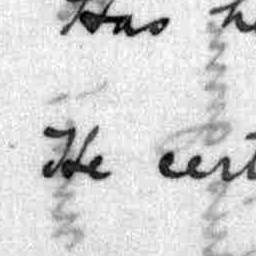 Has h
He cert